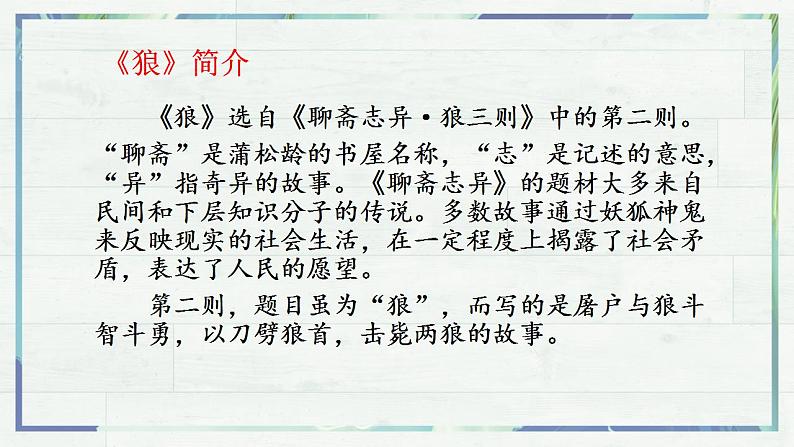 《狼》简介
《狼》选自《聊斋志异·狼三则》中的第二则。
“聊斋”是蒲松龄的书屋名称，“志”是记述的意思，
“异”指奇异的故事。《聊斋志异》的题材大多来自
民间和下层知识分子的传说。多数故事通过妖狐神鬼
来反映现实的社会生活，在一定程度上揭露了社会矛
盾，表达了人民的愿望。
第二则，题目虽为“狼”，而写的是屠户与狼斗
智斗勇，以刀劈狼首，击毙两狼的故事。